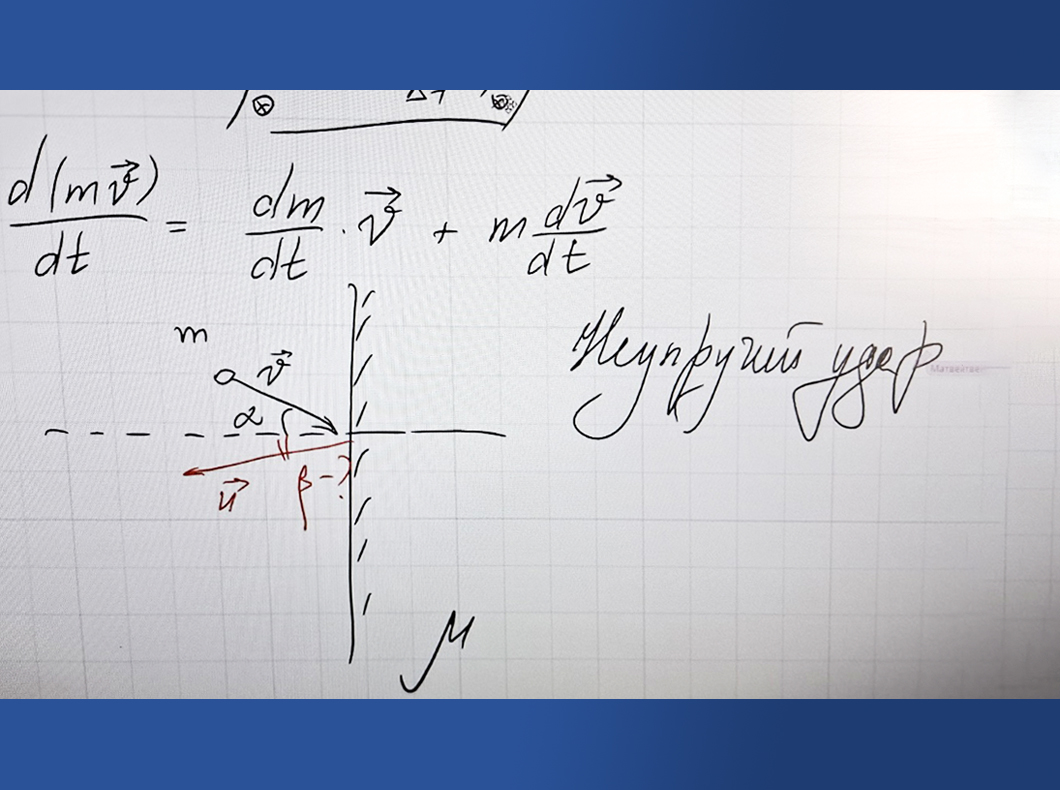 Δt
d(m\vec{v})/dt = dm/dt · \vec{v} + m d\vec{v}/dt
m
\vec{v}
α
Неупругий удар
\vec{u}
β-?
μ